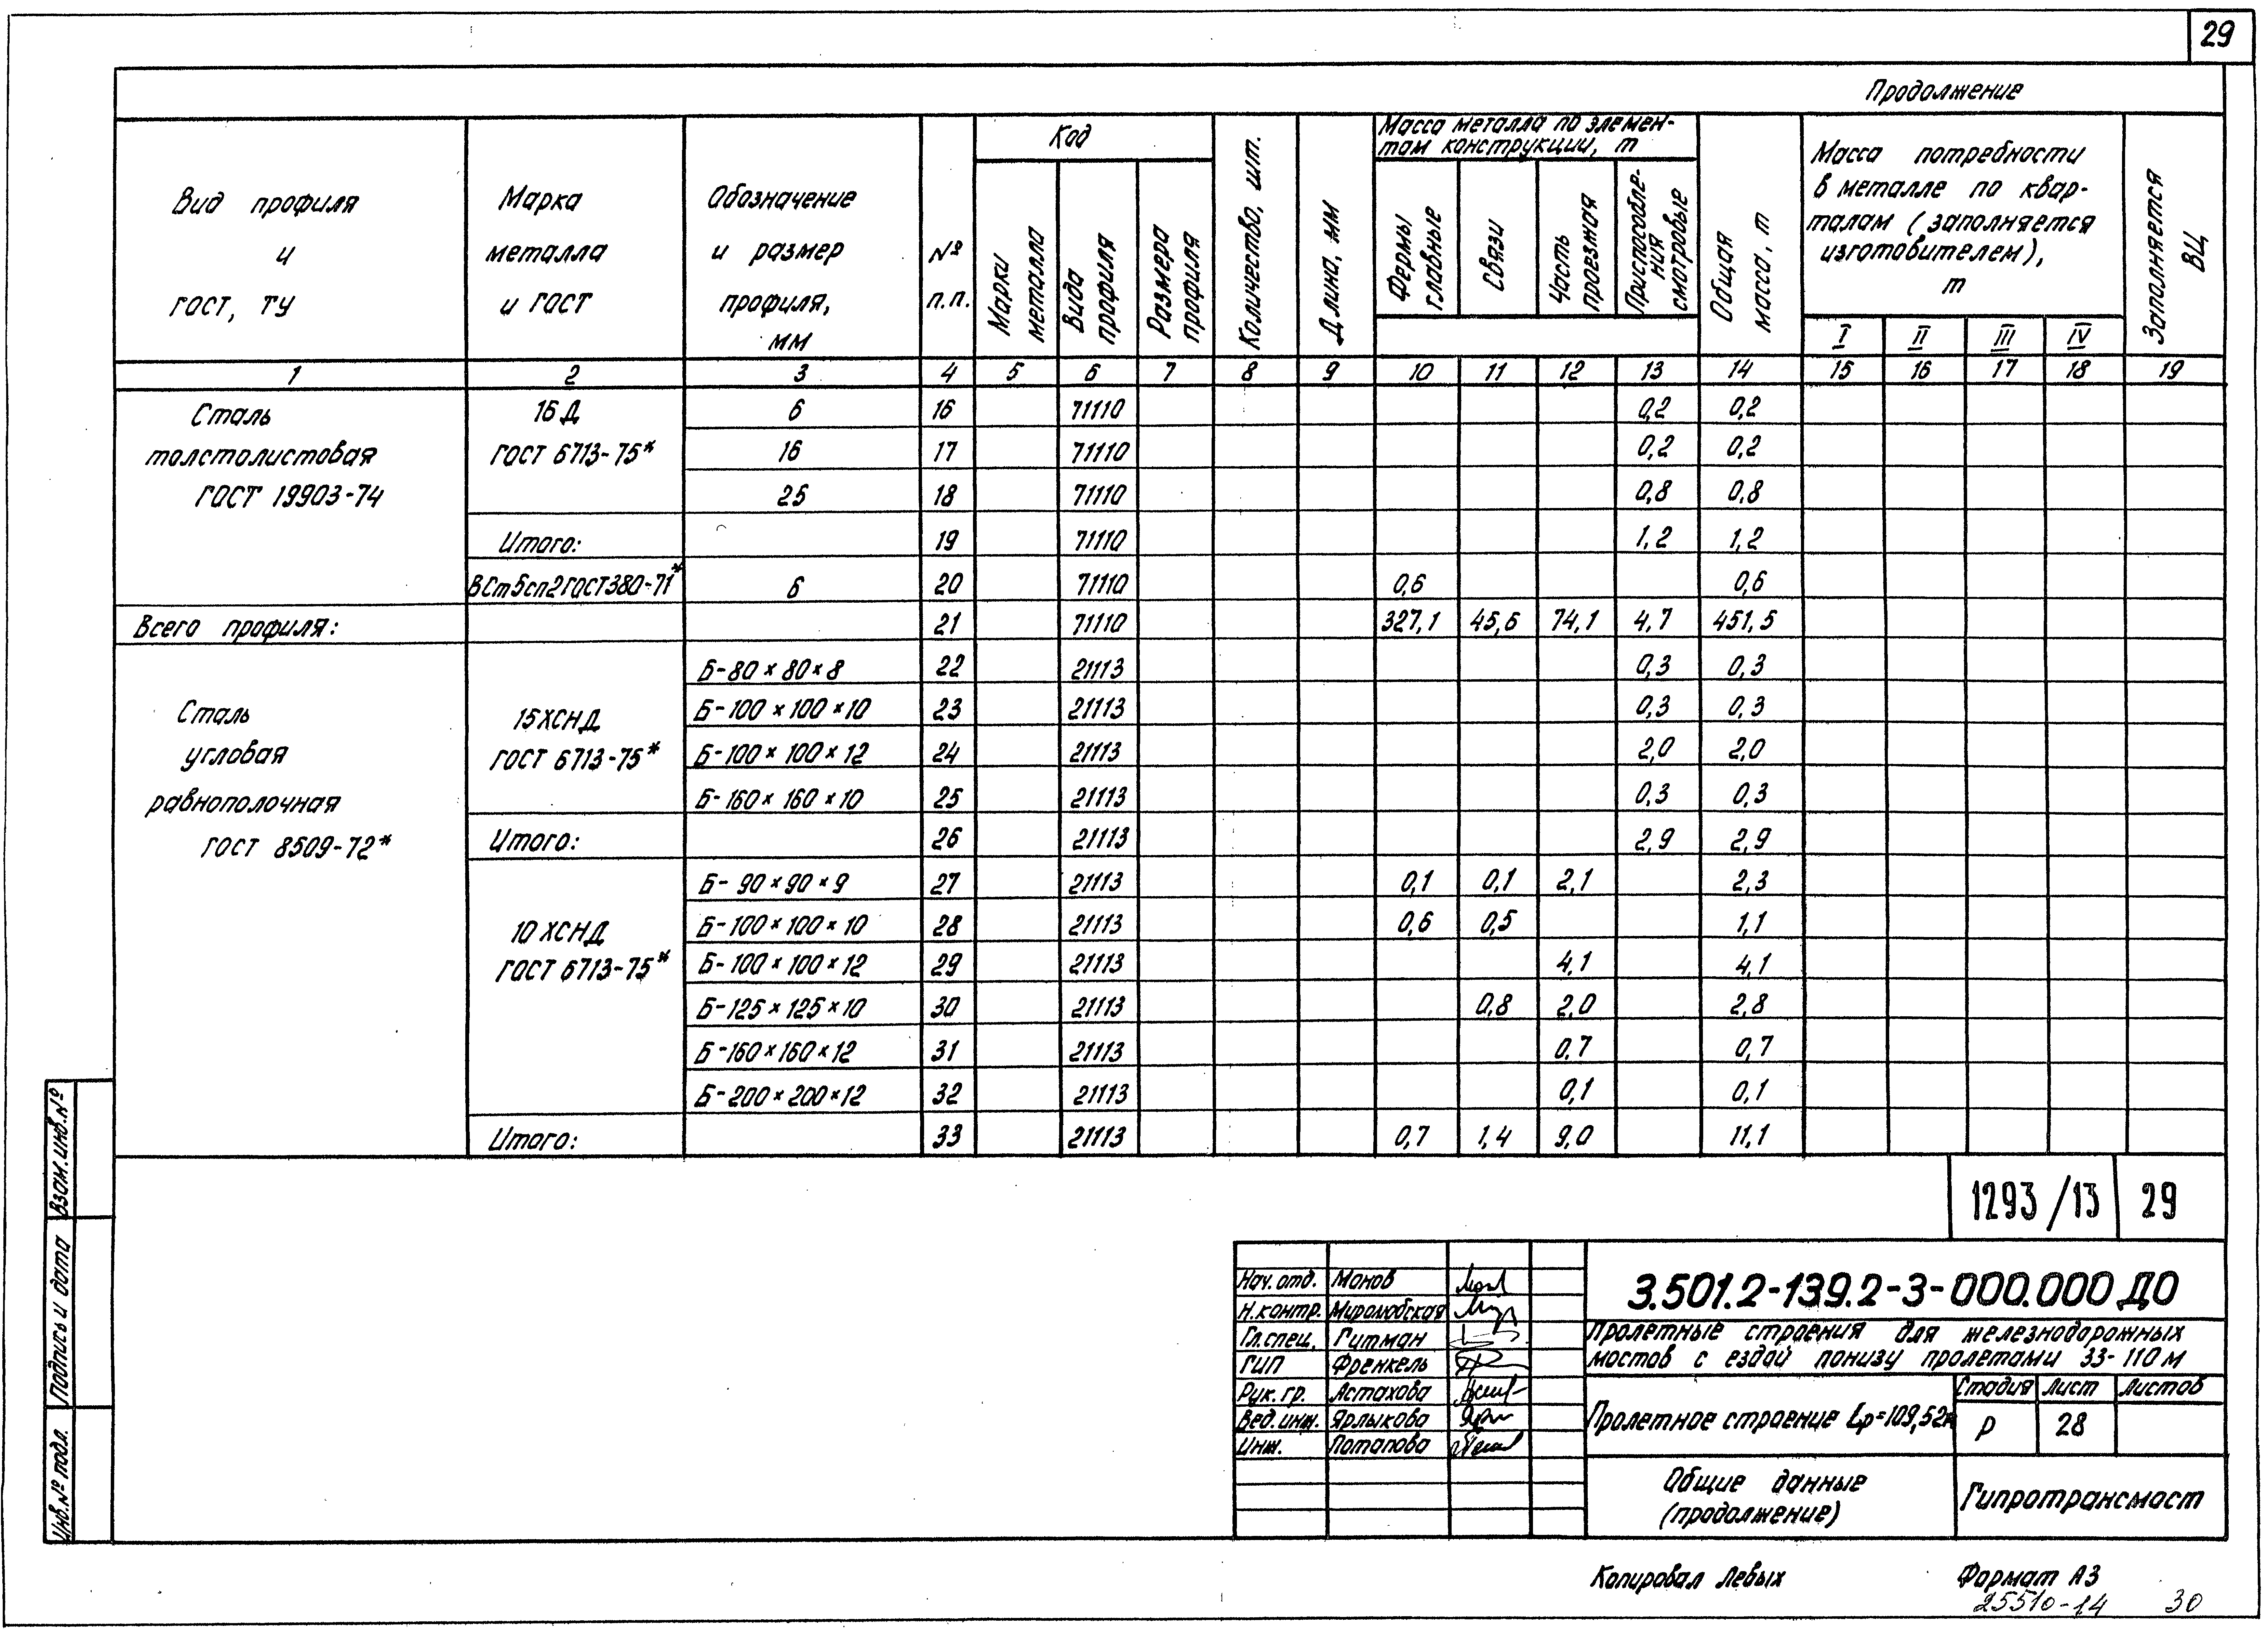 29
Продолжение
Вид профиля
и
ГОСТ, ТУ
Марка
металла
и ГОСТ
Обозначение
и размер
профиля,
мм
№
п.п.
Код
Марки
металла
Вида
профиля
Размера
профиля
Количество, шт.
Длина, мм
Масса металла по элемен-
там конструкции, т
Фермы
главные
Связи
Часть
проезжая
Приспособле-
ния
смотровые
Общая
масса, т
Масса потребности
в металле по квар-
талам (заполняется
изготовителем),
т
I II III IV
Заполняется
ВЦ
1 2 3 4 5 6 7 8 9 10 11 12 13 14 15 16 17 18 19
Сталь
толстолистовая
ГОСТ 19903-74
16Д
ГОСТ 6713-75*
6 16 71110 0,2 0,2
16 17 71110 0,2 0,2
25 18 71110 0,8 0,8
Итого: 19 71110 1,2 1,2
ВСт5сп2 ГОСТ 380-71* 6 20 71110 0,6 0,6
Всего профиля: 21 71110 327,1 45,6 74,1 4,7 451,5
Сталь
угловая
равнополочная
ГОСТ 8509-72*
15ХСНД
ГОСТ 6713-75*
Б-80×80×8 22 21113 0,3 0,3
Б-100×100×10 23 21113 0,3 0,3
Б-100×100×12 24 21113 2,0 2,0
Б-160×160×10 25 21113 0,3 0,3
Итого: 26 21113 2,9 2,9
10ХСНД
ГОСТ 6713-75*
Б-90×90×9 27 21113 0,1 0,1 2,1 2,3
Б-100×100×10 28 21113 0,6 0,5 1,1
Б-100×100×12 29 21113 4,1 4,1
Б-125×125×10 30 21113 0,8 2,0 2,8
Б-160×160×12 31 21113 0,7 0,7
Б-200×200×12 32 21113 0,1 0,1
Итого: 33 21113 0,7 1,4 9,0 11,1
Взам.инв.№
Подпись и дата
Инв.№ подл.
1293/13 29
Нач.отд. Монов
Н.контр. Миролюбская
Гл.спец. Гитман
ГИП Френкель
Рук.гр. Астахова
Вед.инж. Ярлыкова
Инж. Потапова
3.501.2-139.2-3-000.000 ДО
Пролетные строения для железнодорожных
мостов с ездой понизу пролетами 33-110 м
Пролетное строение Lр=109,52м
Стадия Лист Листов
Р 28
Общие данные
(продолжение)
Гипротрансмост
Копировал Левых
Формат А3
25510-14 30